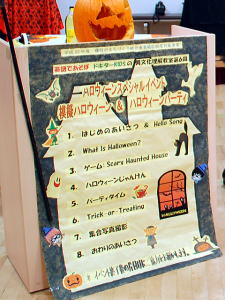 英語であそぼ ドキタ-KIDSの異文化理解教室第6回
ハロウィーンスペシャルイベント
模擬ハロウィーン & ハロウィーンパーティ
1. はじめのあいさつ & Hello Song
2. What Is Halloween?
3. ゲーム: Scary Haunted House
4. ハロウィーンじゃんけん
5. パーティタイム
6. Trick-or-Treating
7. 集合写真撮影
8. おわりのあいさつ